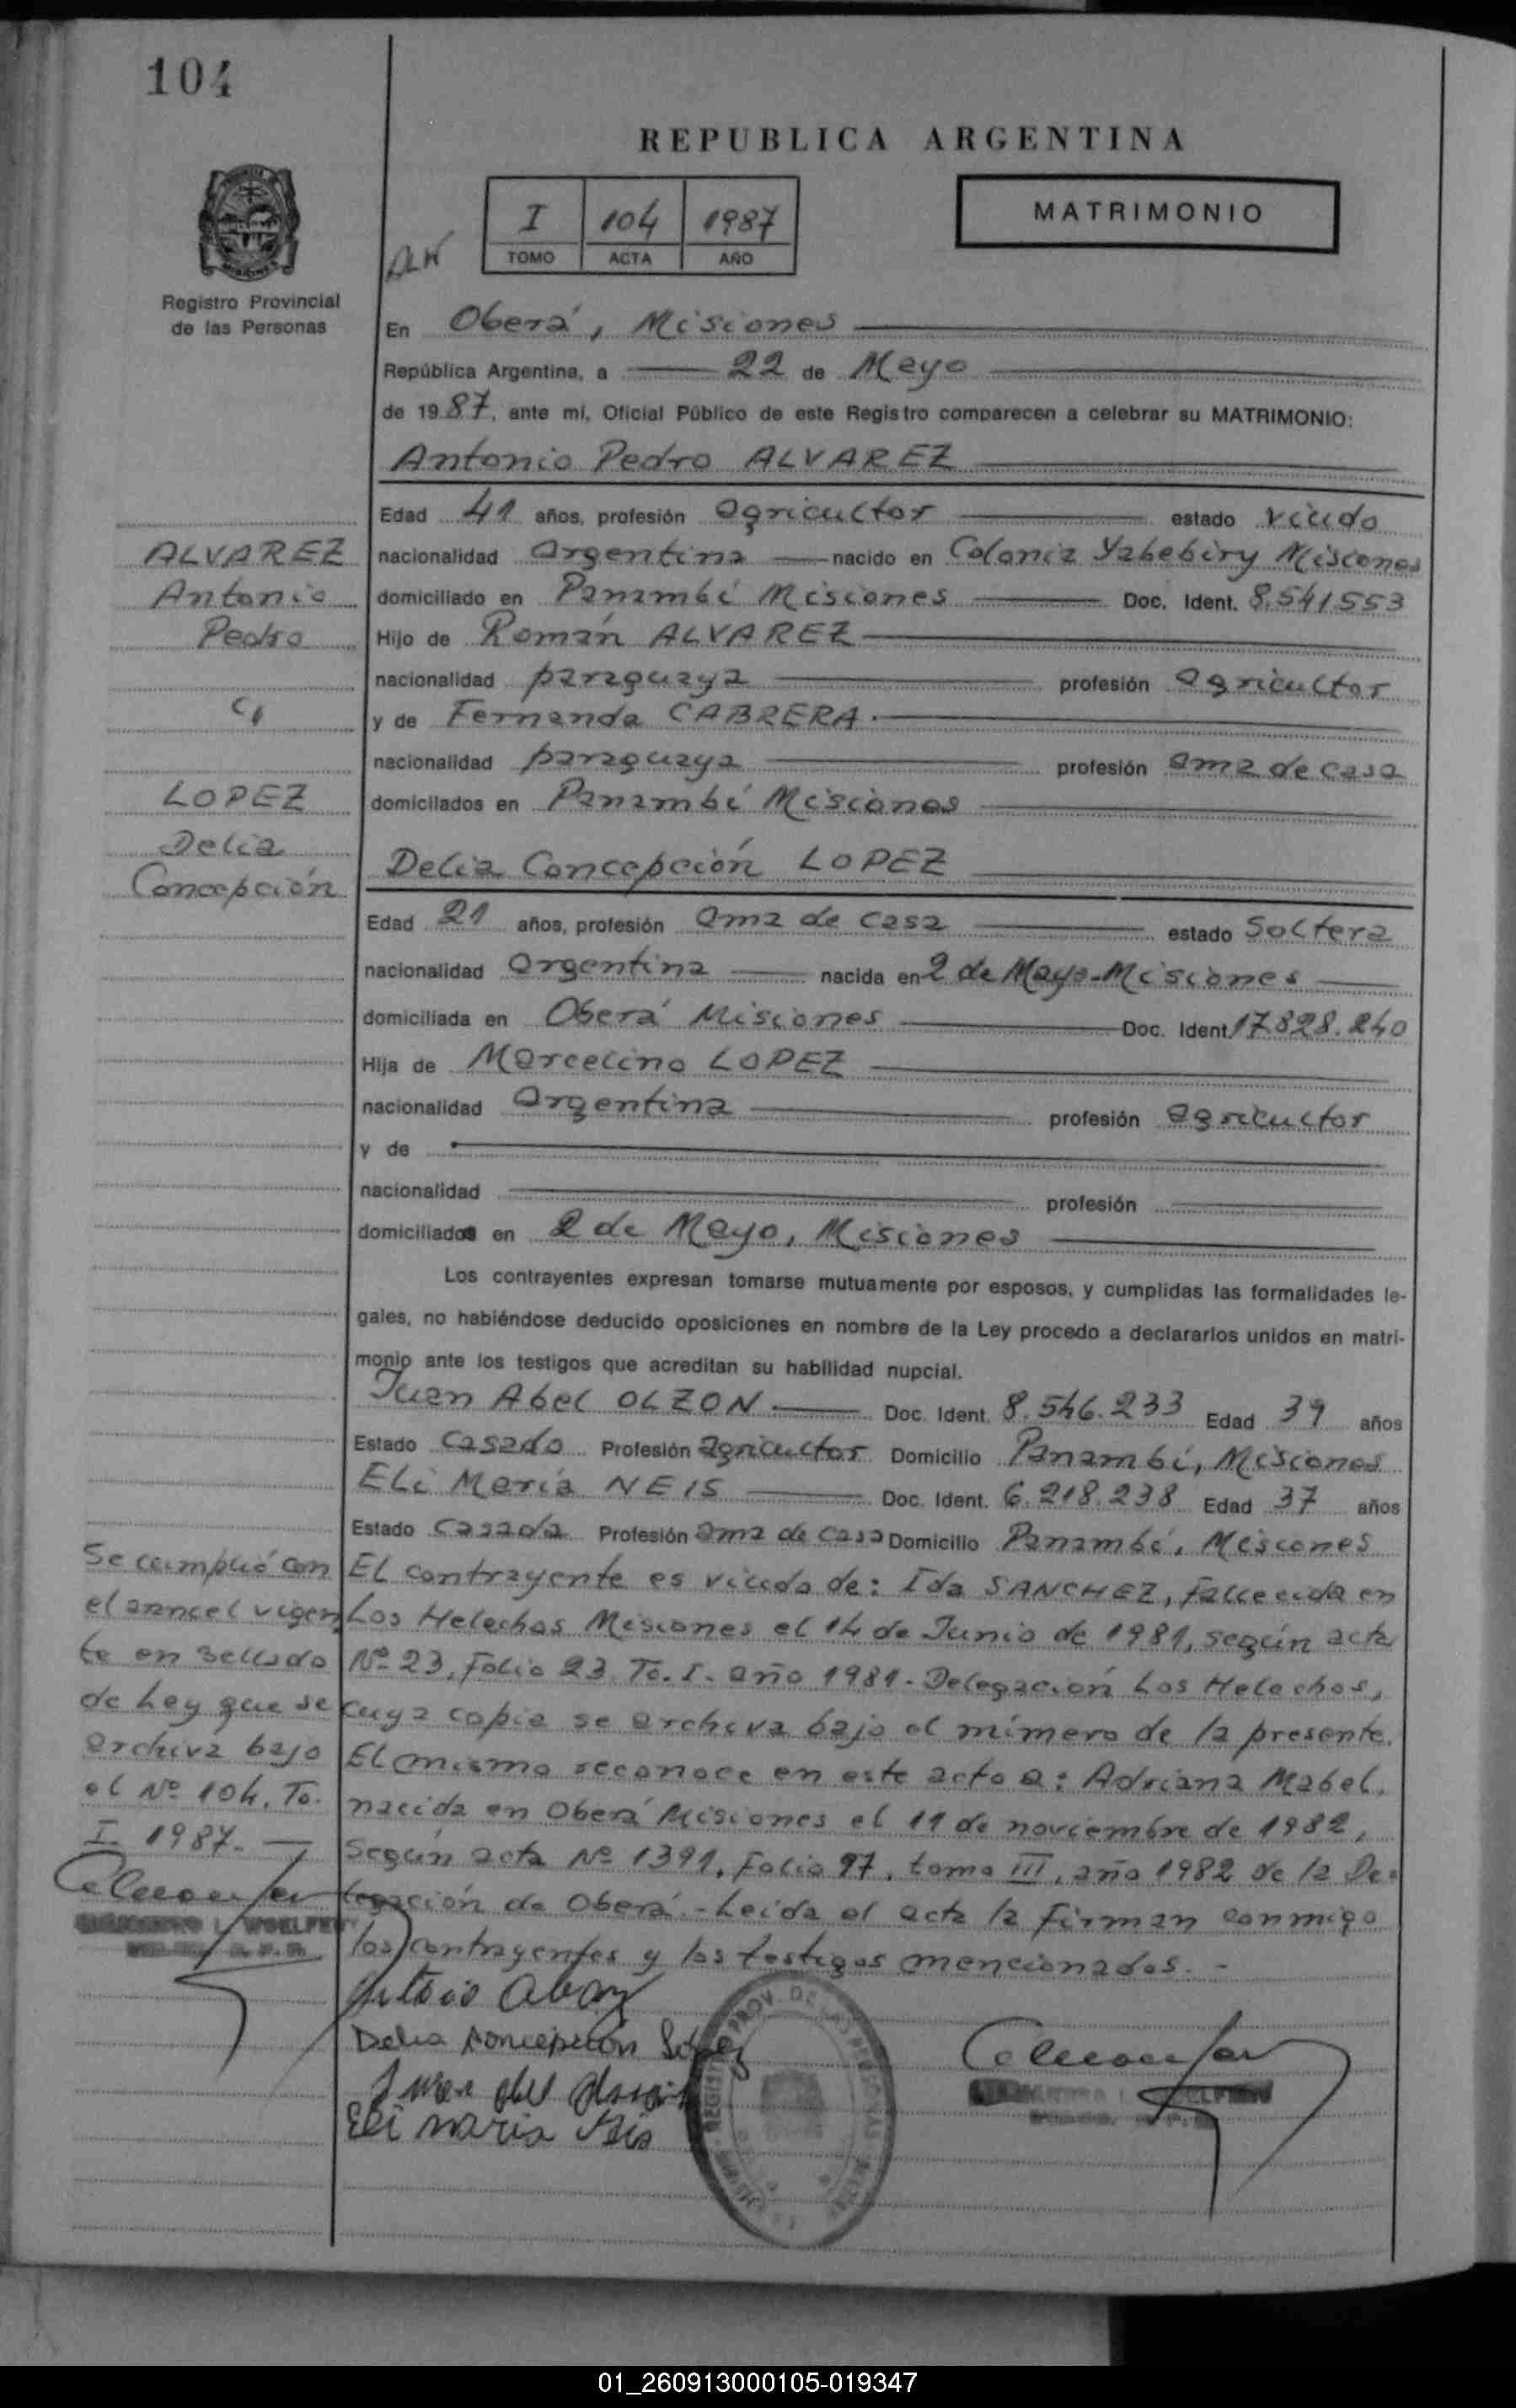 104
REPUBLICA ARGENTINA
I 104 1987
TOMO ACTA AÑO
MATRIMONIO
Registro Provincial
de las Personas
En Oberá, Misiones
República Argentina, a 22 de Mayo
de 1987, ante mí, Oficial Público de este Registro comparecen a celebrar su MATRIMONIO:
Antonio Pedro ALVAREZ
Edad 41 años, profesión agricultor estado viudo
nacionalidad argentina nacido en Colonia Yabebiry Misiones
domiciliado en Panambí Misiones Doc. Ident. 8.541553
Hijo de Román ALVAREZ
nacionalidad paraguaya profesión agricultor
y de Fernanda CABRERA.
nacionalidad paraguaya profesión ama de casa
domiciliados en Panambí Misiones
ALVAREZ
Antonio
Pedro
c/
LOPEZ
Delia
Concepción
Delia Concepción LOPEZ
Edad 21 años, profesión ama de casa estado Soltera
nacionalidad argentina nacida en 2 de Mayo-Misiones
domiciliada en Oberá Misiones Doc. Ident. 17.828.240
Hija de Marcelino LOPEZ
nacionalidad argentina profesión agricultor
y de
nacionalidad profesión
domiciliados en 2 de Mayo, Misiones
Los contrayentes expresan tomarse mutuamente por esposos, y cumplidas las formalidades le-
gales, no habiéndose deducido oposiciones en nombre de la Ley procedo a declararlos unidos en matri-
monio ante los testigos que acreditan su habilidad nupcial.
Juan Abel OLZON Doc. Ident. 8.546.233 Edad 39 años
Estado casado Profesión agricultor Domicilio Panambí, Misiones
Eli María NEIS Doc. Ident. 6.218.238 Edad 37 años
Estado casada Profesión ama de casa Domicilio Panambí, Misiones
El contrayente es viudo de: Ida SANCHEZ, fallecida en
Los Helechos Misiones el 14 de Junio de 1981, según acta
Nº 23, Folio 23. To. I. año 1981-Delegación Los Helechos,
cuya copia se archiva bajo el número de la presente.
El mismo reconoce en este acto a: Adriana Mabel,
nacida en Oberá Misiones el 11 de noviembre de 1982,
según acta Nº 1391, Folio 97, tomo III, año 1982 de la De-
legación de Oberá.-Leída el acta la firman conmigo
los contrayentes y los testigos mencionados.-
Se cumplió con
el arancel vigen
te en sellado
de Ley que se
archiva bajo
el Nº 104. To.
I. 1987.
Delia Concepción López
Eli maria Neis
01_260913000105-019347